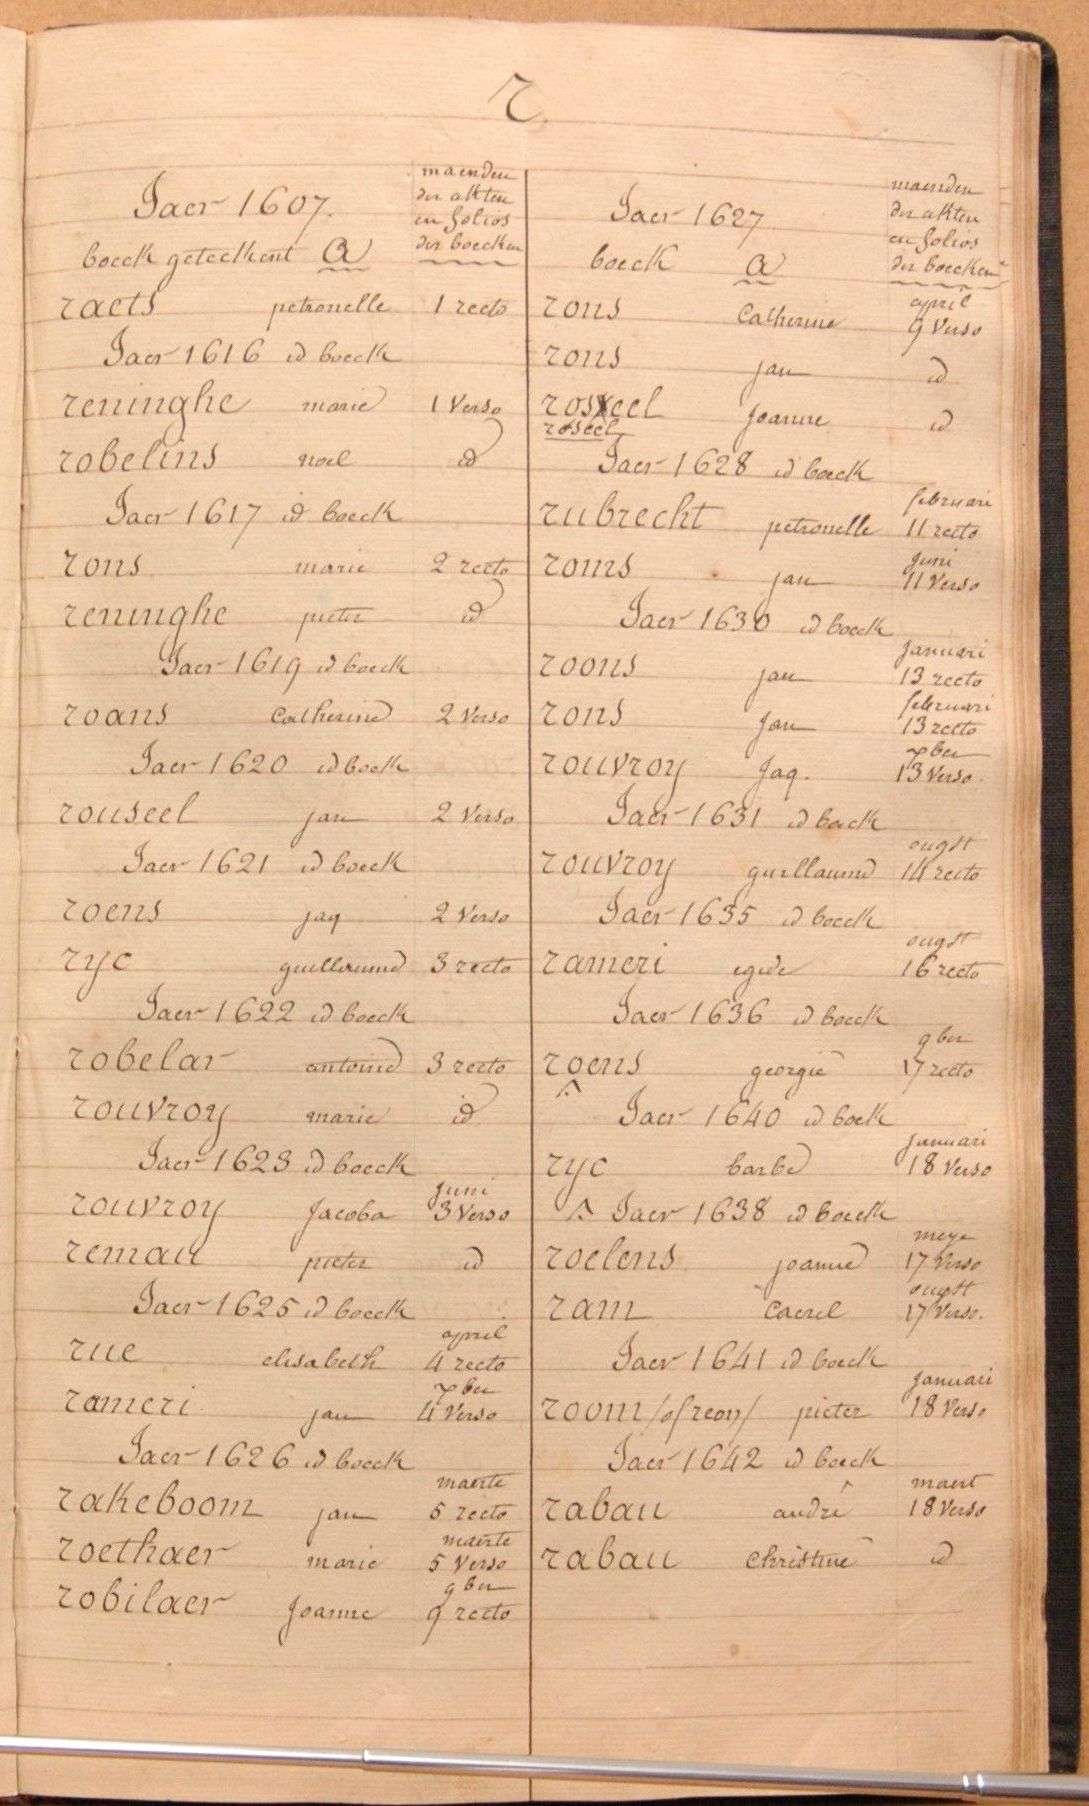 r.
maenden
der akten
en folios
der boecken
Jaer 1607.
boeck geteekent A
raets petronelle 1 recto
Jaer 1616 id boeck
reninghe marie 1 Verso
robelins noel id
Jaer 1617 id boeck
rons marie 2 recto
reninghe pieter id
Jaer 1619 id boeck
roans Catherine 2 Verso
Jaer 1620 id boeck
rouseel jan 2 Verso
Jaer 1621 id boeck
roens jaq 2 Verso
ryc guilleaume 3 recto
Jaer 1622 id boeck
robelar antoine 3 recto
rouvroy marie id
Jaer 1623 id boeck
juni
rouvroy Jacoba 3 Verso
remau pieter id
Jaer 1625 id boeck
april
rue elisabeth 4 recto
7ber
rameri jan 4 Verso
Jaer 1626 id boeck
maerte
rakeboom jan 5 recto
maerte
roethaer marie 5 Verso
9ber
robilaer Joanne 9 recto
maenden
der akten
en folios
der boecken
Jaer 1627
boeck A
april
rons Catherine 9 Verso
rons jan id
roseel Joanne id
roseel
Jaer 1628 id boeck
februari
rubrecht petronelle 11 recto
juni
roms jan 11 Verso
Jaer 1630 id boeck
januari
roons jan 13 recto
februari
rons Jan 13 recto
7ber
rouvroy Jaq. 13 Verso.
Jaer 1631 id boeck
ougst
rouvroy guillaume 14 recto
Jaer 1635 id boeck
ougst
rameri egide 16 recto
Jaer 1636 id boeck
9ber
roens georgie 17 recto
Jaer 1640 id boek
januari
ryc barbe 18 Verso
Jaer 1638 id boeck
meye
roelens joanne 17 Verso
ougst
ram Caerel 17 Verso.
Jaer 1641 id boeck
januari
room /of reon/ pieter 18 Verso
Jaer 1642 id boeck
maert
rabau andré 18 Verso
rabau Christine id